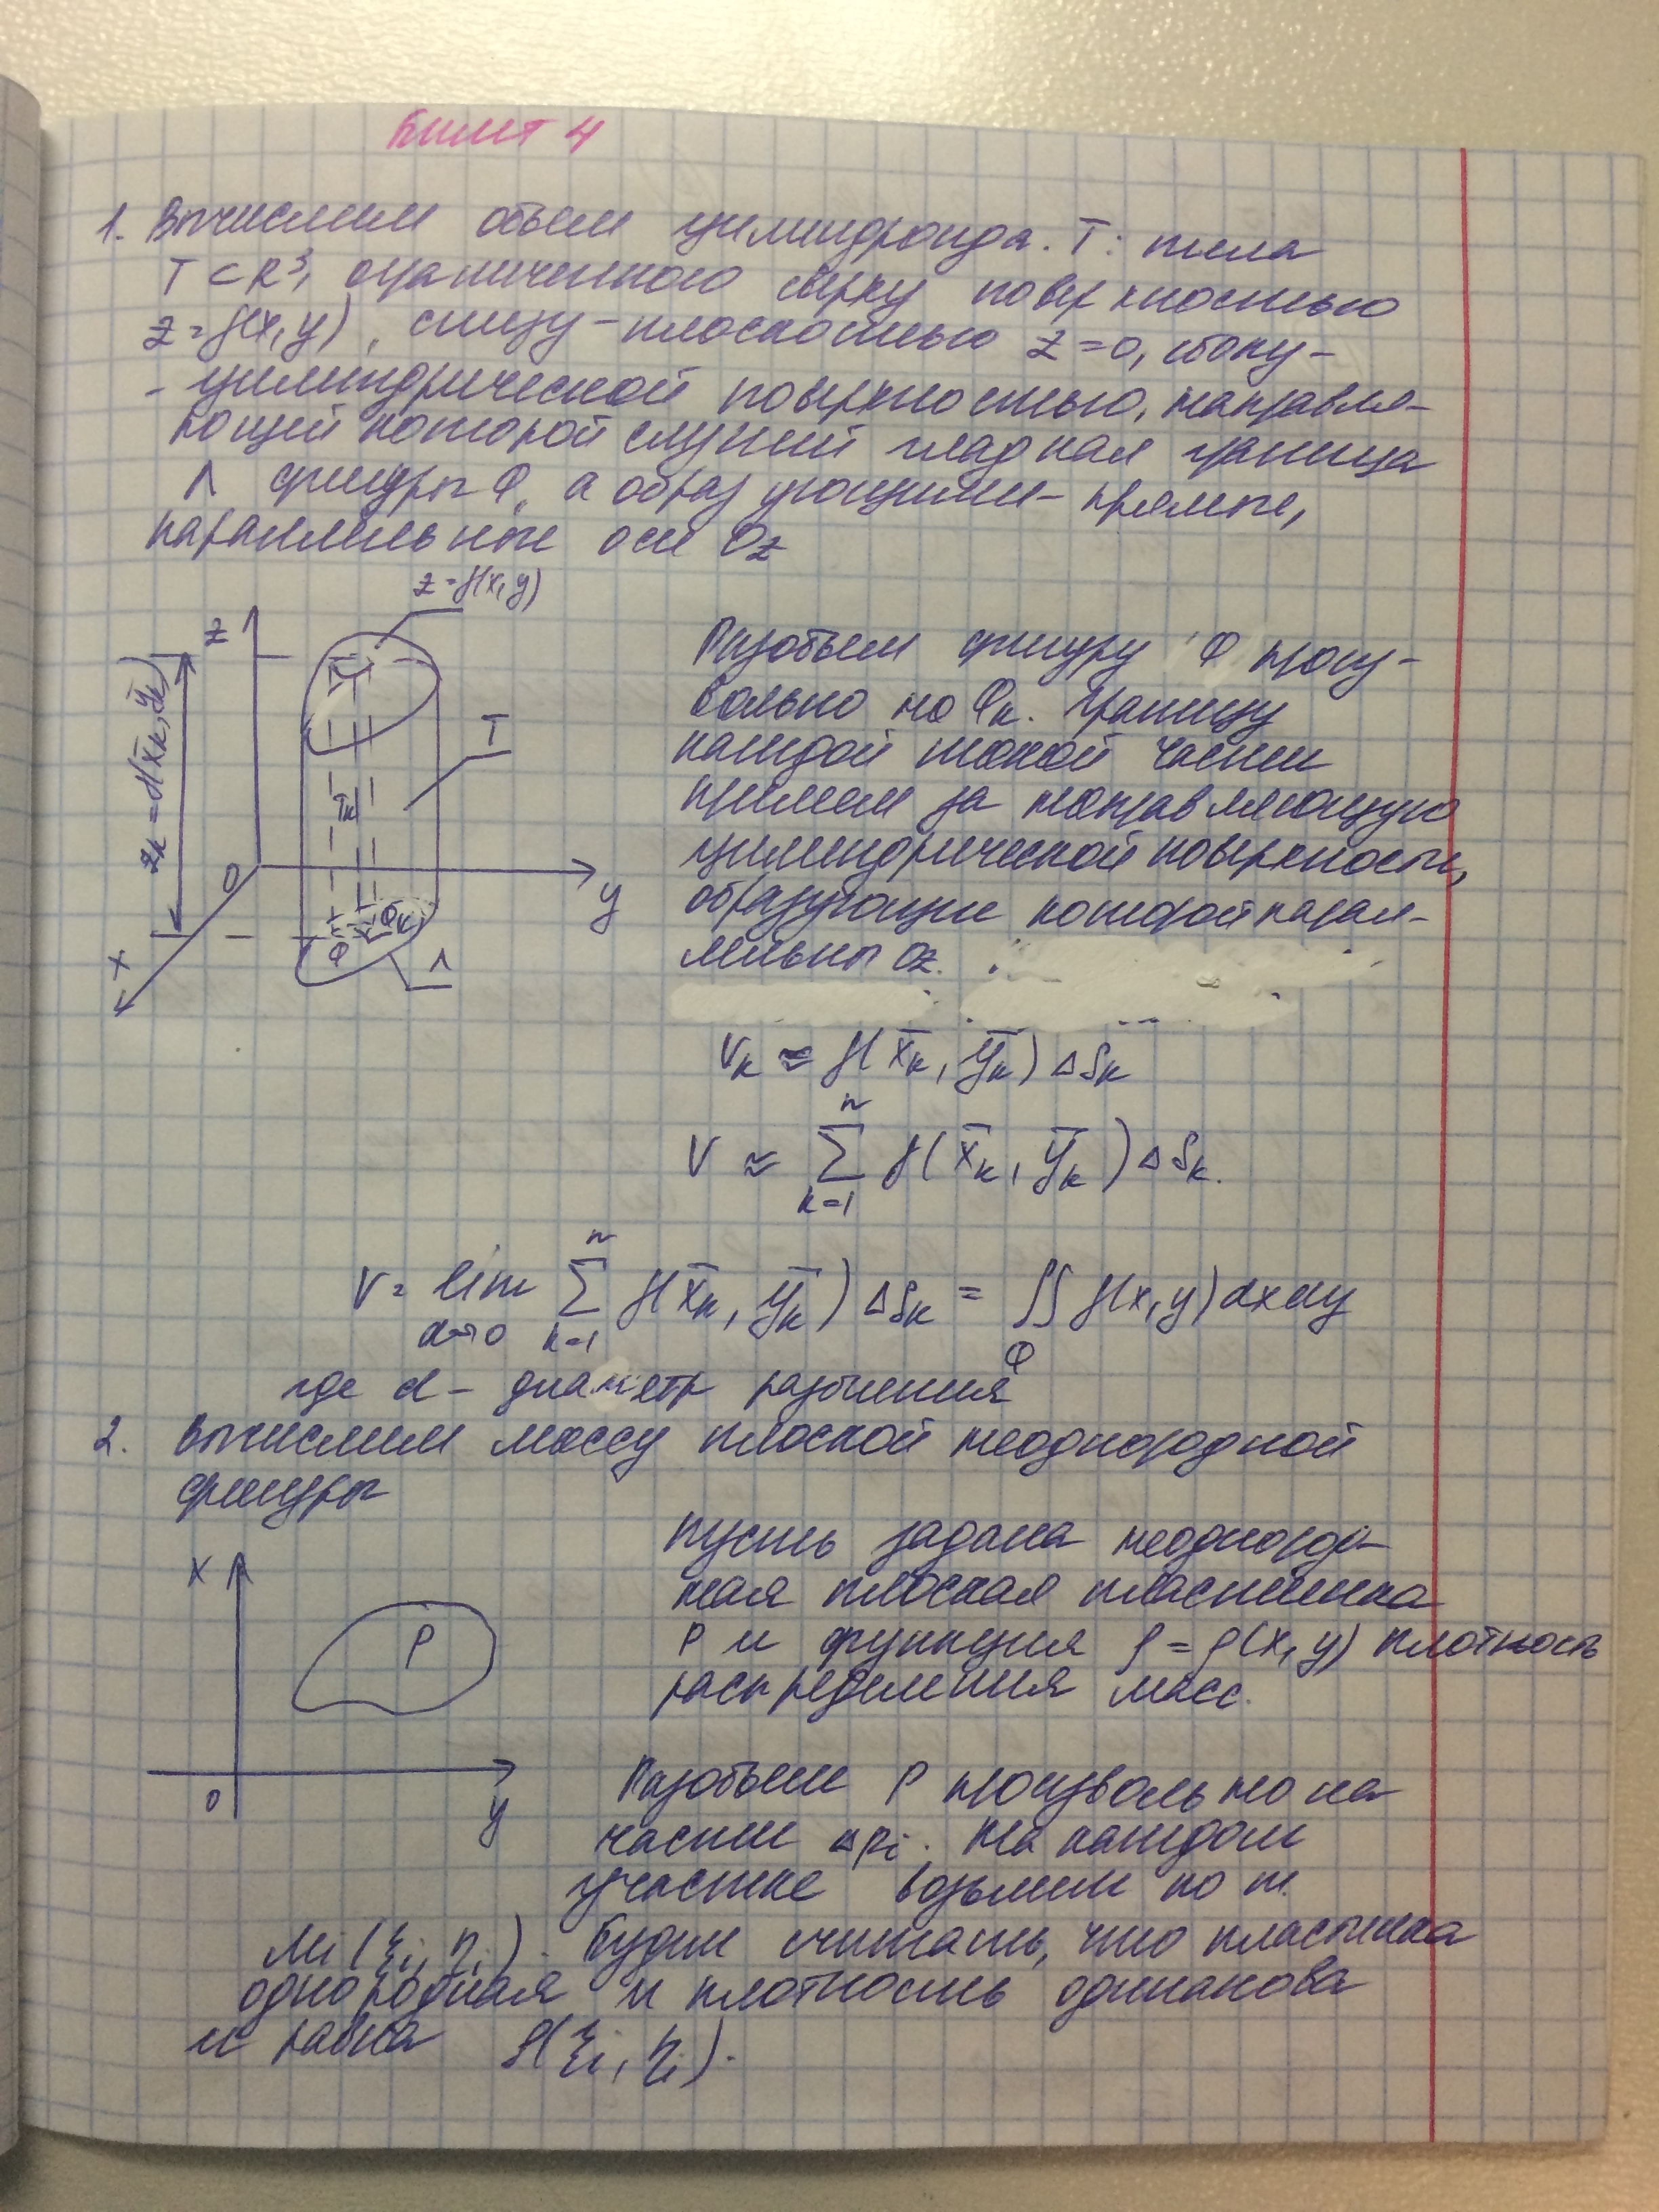 Билет 4
1. Вычислим объем цилиндроида. T: тела
T ⊂ R³, ограниченного сверху поверхностью
z = f(x, y), снизу - плоскостью z = 0, сбоку -
- цилиндрической поверхностью, направля-
ющей которой служит гладкая граница
Λ фигуры Φ, а образующими - прямые,
параллельные оси Oz
z = f(x, y)
z
T
z_k = f(x̄_k, ȳ_k)
T_k
O
y
Φ_k
Φ
x
Λ
Разобьем фигуру Φ произ-
вольно на Φ_k. Границу
каждой такой части
примем за направляющую
цилиндрической поверхности,
образующие которой парал-
лельны Oz.
V_k ≈ f(x̄_k, ȳ_k) ΔS_k
V ≈ ∑_{k=1}^{n} f(x̄_k, ȳ_k) ΔS_k.
V = lim_{d→0} ∑_{k=1}^{n} f(x̄_k, ȳ_k) ΔS_k = ∬_Φ f(x, y) dxdy
где d - диаметр разбиения
2. Вычислим массу плоской неоднородной
фигуры
x
P
O
y
Пусть задана неоднород-
ная плоская пластинка
P и функция ρ = ρ(x, y) плотность
распределения масс.
Разобьем P произвольно на
части ΔP_i. На каждом
участке возьмем по т.
M_i(ξ_i, η_i). Будем считать, что пластинка
однородная и плотность одинакова
и равна ρ(ξ_i, η_i).